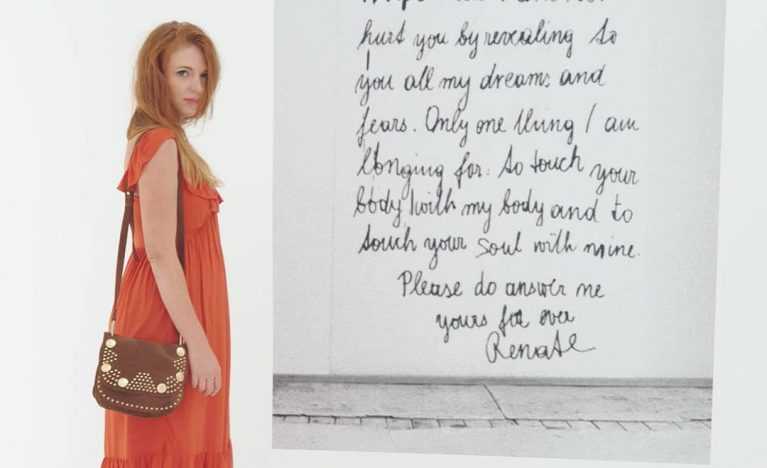 hurt you by revealing to
you all my dreams and
fears. Only one thing I am
longing for: to touch your
body with my body and to
touch your soul with mine.
Please do answer me
yours for ever
Renate